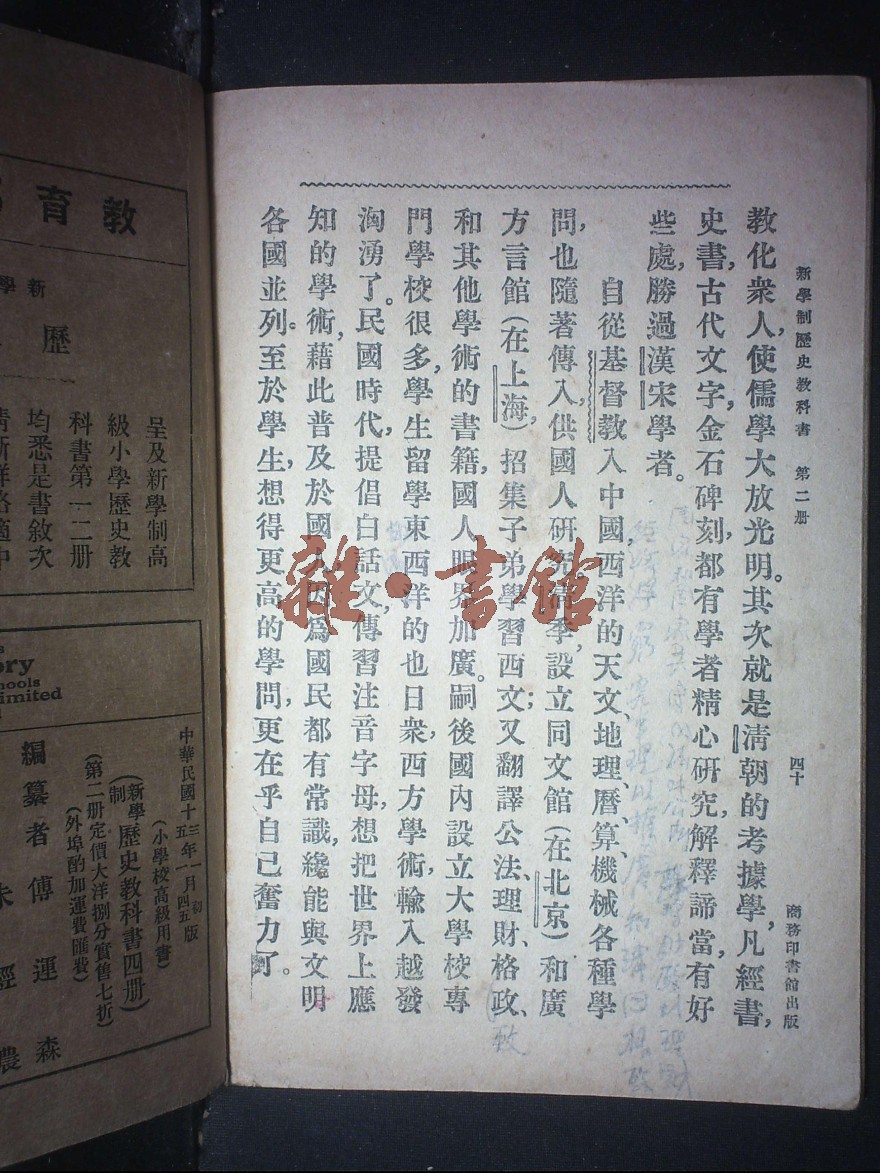 新學制歷史教科書 第二册
四十
商務印書館出版
教化衆人,使儒學大放光明。其次就是清朝的考據學,凡經書,
史書,古代文字,金石碑刻,都有學者精心研究,解釋諦當,有好
些處,勝過漢宋學者。
自從基督教入中國,西洋的天文、地理、曆算、機械各種學
問,也隨著傳入,供國人研究。清季,設立同文館(在北京)和廣
方言館(在上海)招集子弟,學習西文;又翻譯公法、理財、格政、
和其他學術的書籍,國人眼界加廣。嗣後國內設立大學校專
門學校很多,學生留學東西洋的也日衆,西方學術,輸入越發
洶湧了。民國時代,提倡白話文,傳習注音字母,想把世界上應
知的學術,藉此普及於國人,因爲國民都有常識,纔能與文明
各國並列。至於學生,想得更高的學問,更在乎自己奮力了。
致
雜·書館
教育
新學
歷
呈及新學制高
級小學歷史教
科書第一二册
均悉是書敘次
ory
hools
imited
中華民國十三年一月初版
五 四五
(小學校高級用書)
(新學制歷史教科書四册)
(第二册定價大洋捌分實售七折)
(外埠酌加運費匯費)
編纂者 傅運森
朱經農